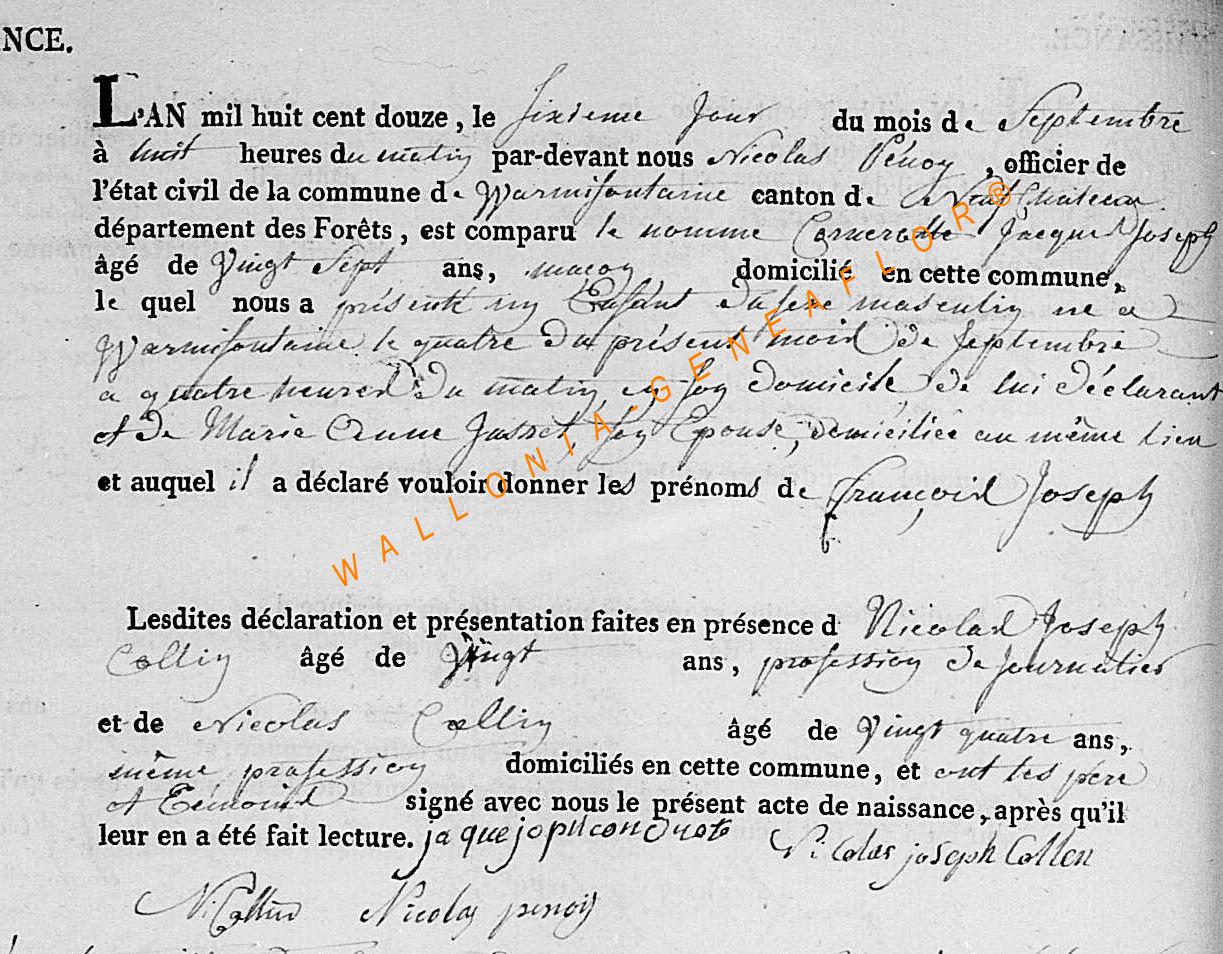 NCE.
L'AN mil huit cent douze, le sixieme jour du mois de Septembre
à huit heures du matin par-devant nous Nicolas Pénoy, officier de
l'état civil de la commune de Warmifontaine canton de Neufchateau
département des Forêts, est comparu le nomme Jacque Joseph
âgé de Vingt Sept ans, maçon domicilié en cette commune,
le quel nous a présenté un Enfant du sexe masculin né a
Warmifontaine le quatre du présent mois de Septembre
a quatre heures du matin, en son domicile, de lui déclarant
et de Marie Anne son Epouse, domiciliée au même lieu
et auquel il a déclaré vouloir donner les prénoms de François Joseph
Lesdites déclaration et présentation faites en présence d Nicolas Joseph
Collin âgé de Vingt ans, profession de journalier
et de Nicolas Collin âgé de Vingt quatre ans,
même profession domiciliés en cette commune, et ont les pere
et témoins signé avec nous le présent acte de naissance, après qu'il
leur en a été fait lecture. Nicolas joseph Collin
N. Collin Nicolas penoy
WALLONIA-GENEAFLOR®